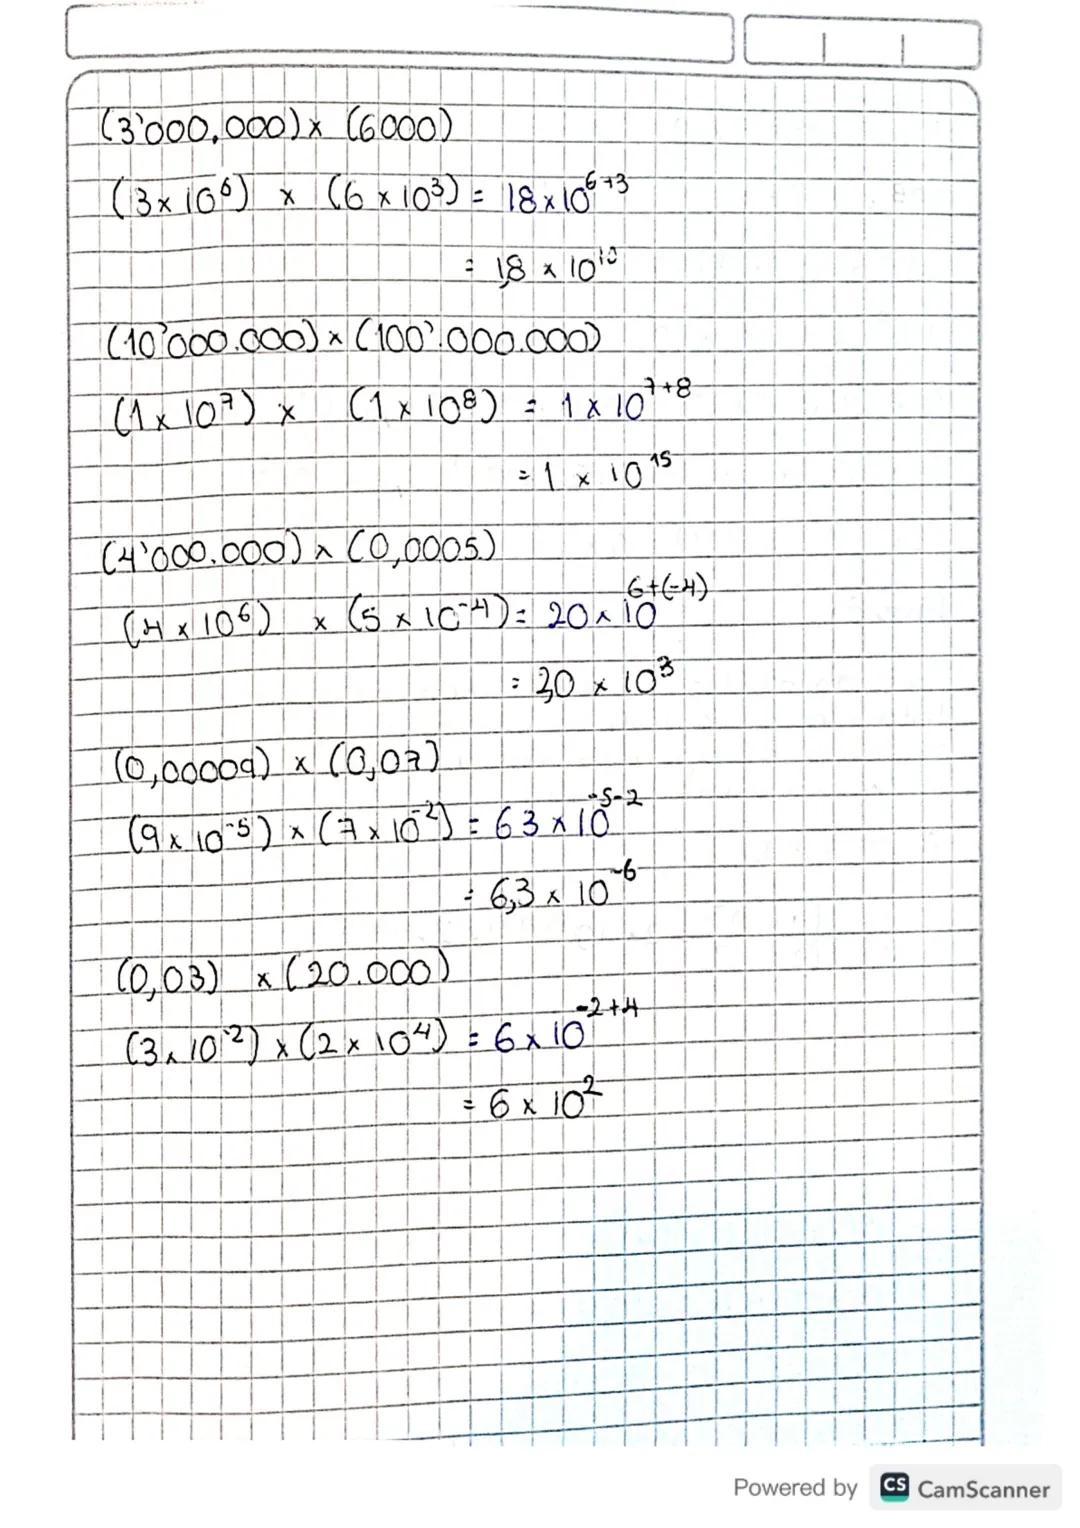 (3'000.000) x (6000)
(3 x 10⁶) x (6 x 10³) = 18 x 10⁶⁺³
= 1,8 x 10¹⁰
(10'000.000) x (100'.000.000)
(1 x 10⁷) x (1 x 10⁸) = 1 x 10⁷⁺⁸
= 1 x 10¹⁵
(4'000.000) x (0,0005)
(4 x 10⁶) x (5 x 10⁻⁴) = 20 x 10⁶⁺⁽⁻⁴⁾
= 2,0 x 10³
(0,00009) x (0,07)
(9 x 10⁻⁵) x (7 x 10⁻²) = 63 x 10⁻⁵⁻²
= 6,3 x 10⁻⁶
(0,03) x (20.000)
(3 x 10⁻²) x (2 x 10⁴) = 6 x 10⁻²⁺⁴
= 6 x 10²
Powered by CS CamScanner